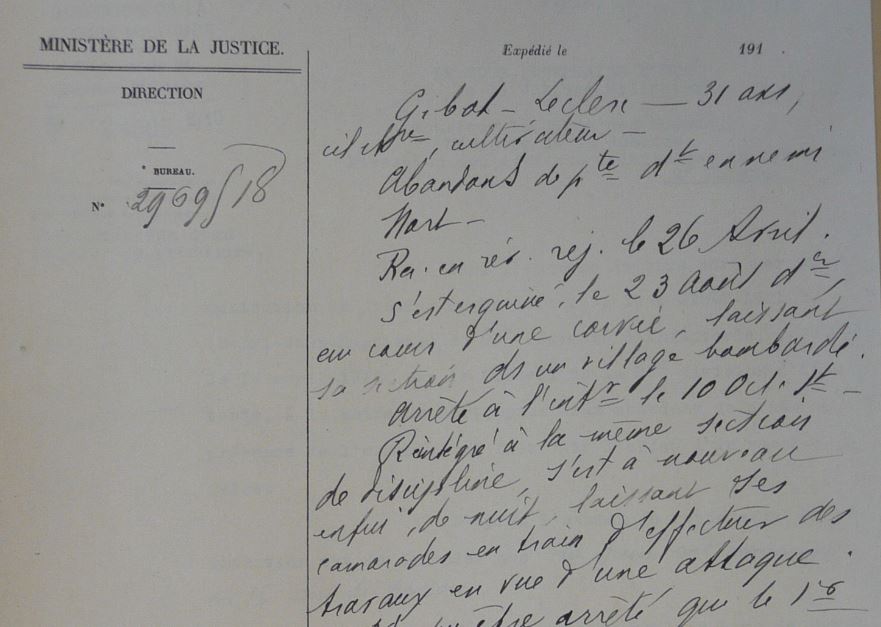 MINISTÈRE DE LA JUSTICE.
DIRECTION
BUREAU.
N° 2969 S 18
Expédié le 191 .
Gibot-Leclerc — 31 ans,
célibre, cultivateur —
Abandons de pte dt ennemi
Mort —
Rn. en rév. rej. le 26 Avril.
S'est esquivé, le 23 Août der,
en cours d'une corvée, laissant
sa section ds un village bombardé.
Arrêté à l'intr le 10 Oct. St —
Réintégré à la même section
de discipline, s'est à nouveau
enfui, de nuit, laissant ses
camarades en train d'effectuer des
travaux en vue d'une attaque.
être arrêté que le 1er